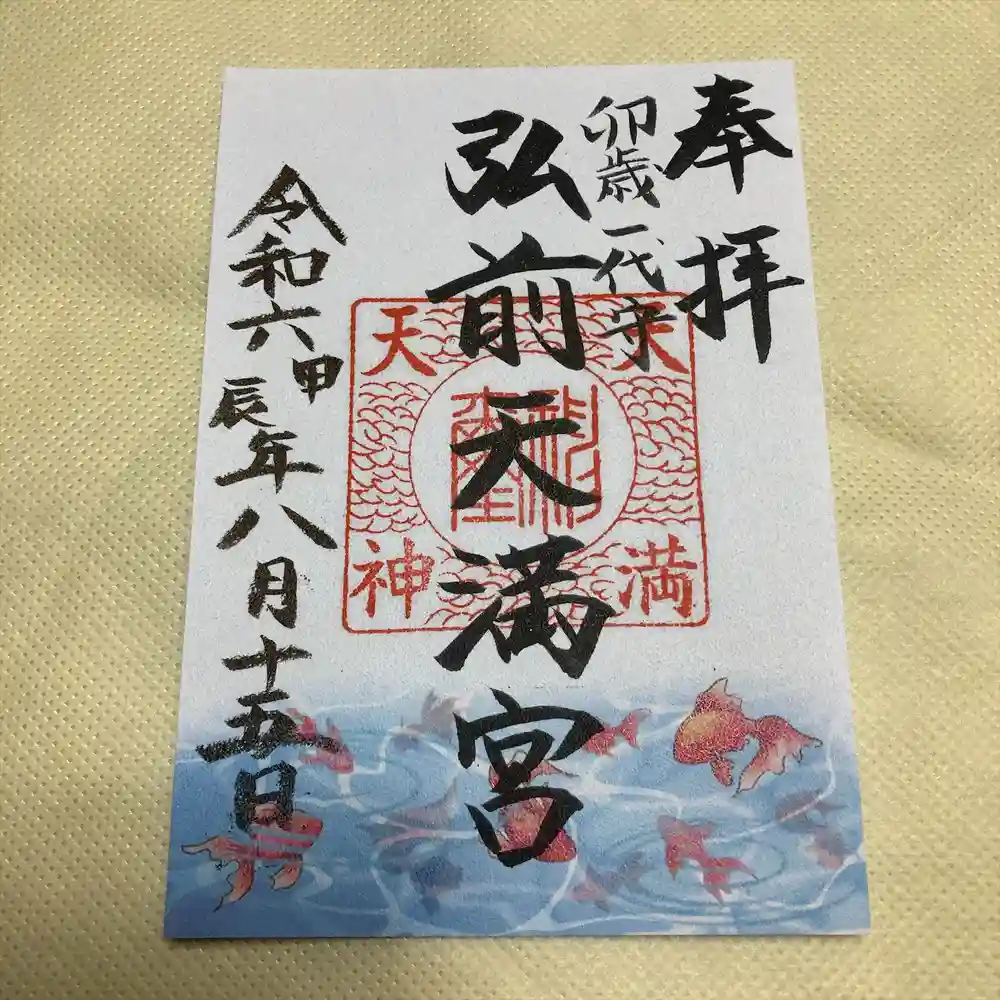 奉拝
卯歳一代守
弘前天満宮
天満
天神
令和六甲辰年八月十五日